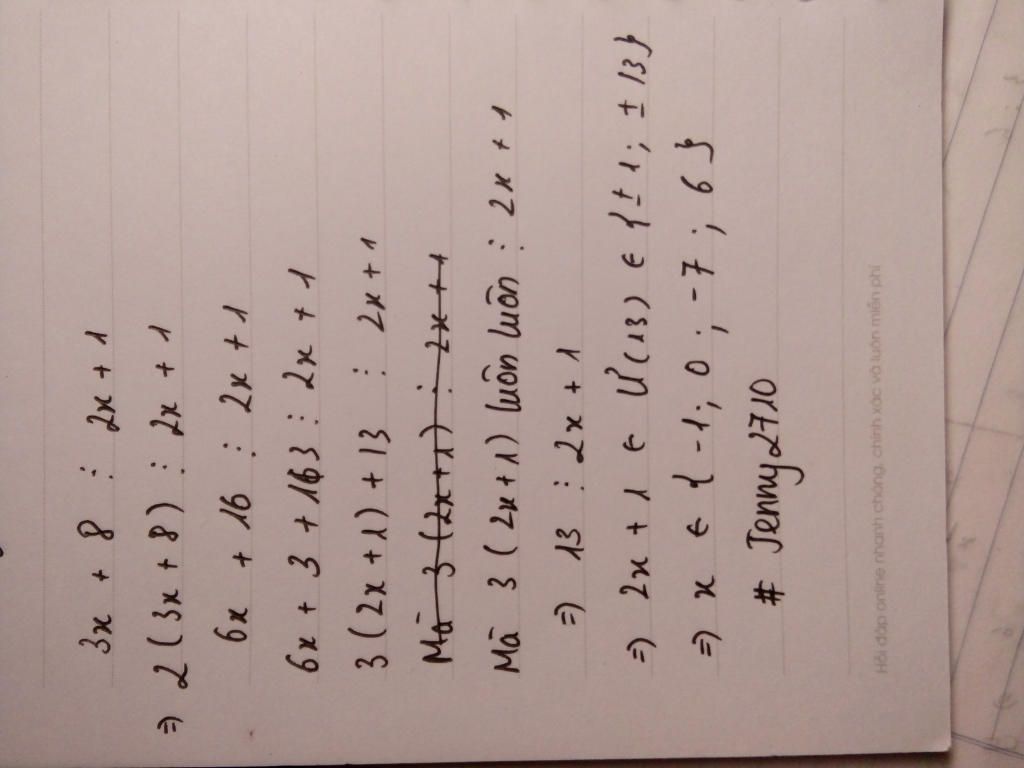 3x + 8 ⋮ 2x + 1
⇒ 2 (3x + 8) ⋮ 2x + 1
6x + 16 ⋮ 2x + 1
6x + 3 + 13 ⋮ 2x + 1
3 (2x + 1) + 13 ⋮ 2x + 1
Mà 3 (2x + 1) ⋮ 2x + 1
Mà 3 (2x + 1) luôn luôn ⋮ 2x + 1
⇒ 13 ⋮ 2x + 1
⇒ 2x + 1 ∈ Ư(13) ∈ { ± 1 ; ± 13 }
⇒ x ∈ { -1 ; 0 ; -7 ; 6 }
# Jenny2710
Hỏi đáp online nhanh chóng, chính xác và luôn miễn phí